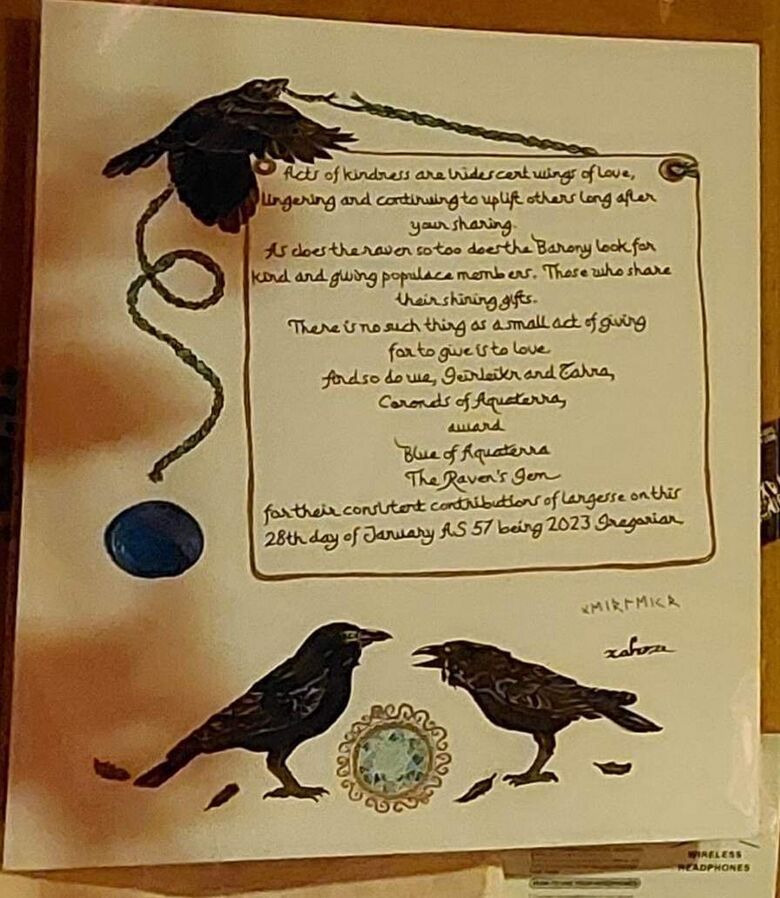 Acts of kindness are iridescent wings of love,
lingering and continuing to uplift others long after
your sharing.
As does the raven so too does the Barony look for
kind and giving populace members. Those who share
their shining gifts.
There is no such thing as a small act of giving
for to give is to love
And so do we, Geirleikr and Zahra,
Coronets of Aquaterra,
award
Blue of Aquaterra
The Raven's Gem
for their consistent contributions of largesse on this
28th day of January AS 57 being 2023 Gregorian
WIRELESS
HEADPHONES